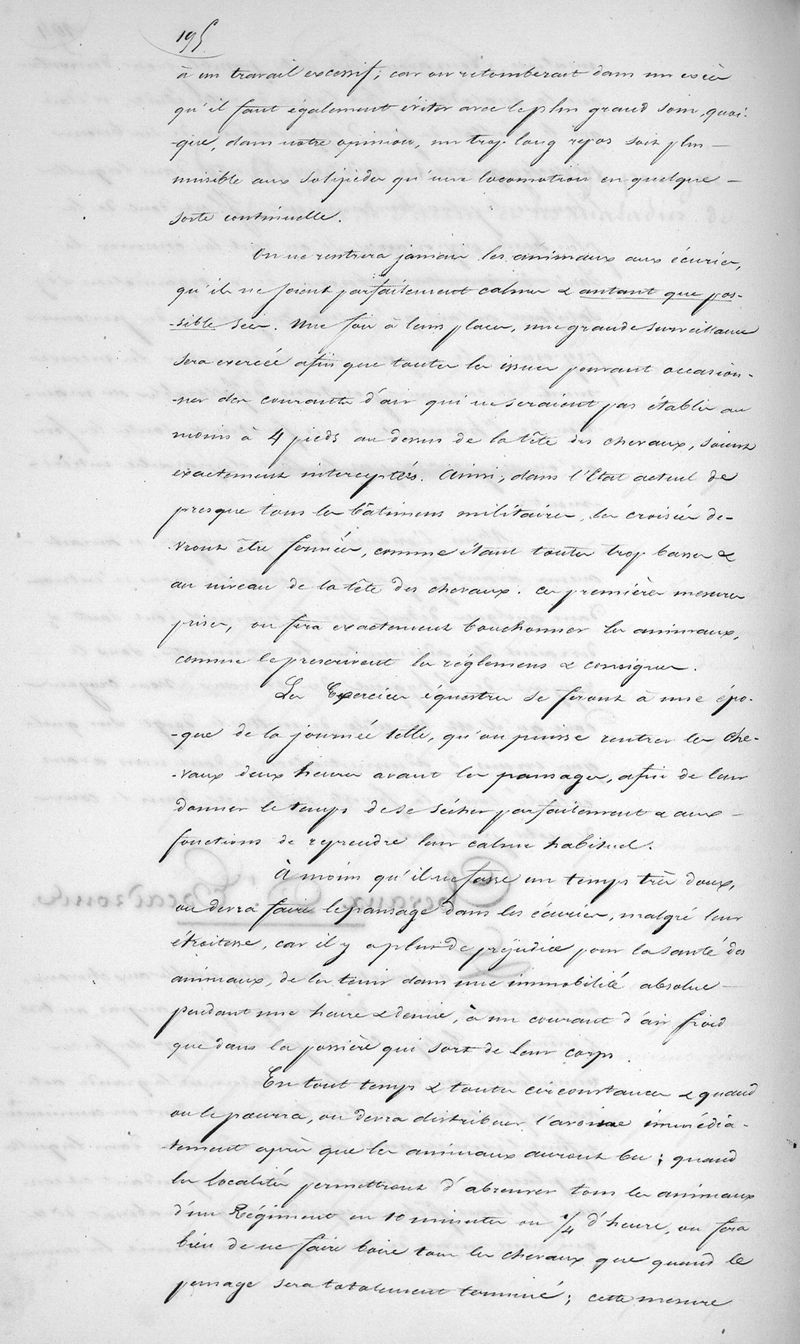 195
à un travail excessif; car on retomberait dans un excès
qu'il faut également éviter avec le plus grand soin, quoi-
que, dans notre opinion, un trop long repos soit plus —
nuisible aux solipèdes qu'une locomotion en quelque —
sorte continuelle.
On ne rentrera jamais les animaux aux écuries,
qu'ils ne soient parfaitement calmes & autant que pos-
-sible secs. Une fois à leurs places, une grande surveillance
sera exercée afin que toutes les issues pouvant occasion-
-ner des courants d'air qui ne seraient pas établis au
moins à 4 pieds au dessus de la tête des chevaux, soient
exactement interceptés. Ainsi, dans l'Etat actuel de
presque tous les bâtimens militaires, les croisées de-
-vront être fermées, comme étant toutes trop basses &
au niveau de la tête des chevaux. Ces premières mesures
prises, on fera exactement bouchonner les animaux,
comme le prescrivent les réglemens & consignes.
Les Exercices équestres se feront à une épo-
-que de la journée telle, qu'on puisse rentrer les che-
-vaux deux heures avant les pansages, afin de leur
donner le temps de se sécher parfaitement & aux —
fonctions de reprendre leur calme habituel.
À moins qu'il ne fasse un temps très doux,
on devra faire le pansage dans les écuries, malgré leur
étroitesse, car il y a plus de préjudice pour la santé des
animaux, de les tenir dans une immobilité absolue —
pendant une heure & demie, à un courant d'air froid
que dans la poussière qui sort de leur corps.
En tout temps & toutes circonstances & quand
on le pourra, on devra distribuer l'avoine immédia-
-tement après que les animaux auront bu; quand
les localités permettront d'abreuver tous les animaux
d'un Régiment en 10 minutes ou 1/4 d'heure, on fera
bien de ne faire boire tous les chevaux que quand le
pansage sera totalement terminé; cette mesure